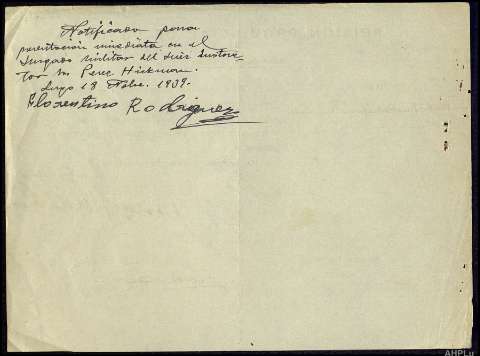 Notificado para
presentacion inmediata en el
Juzgado militar del Juez Instruc-
tor Sr. Perez Hickman.
Lugo 18 Nbre. 1939.
Florentino Rodriguez
AHPLu